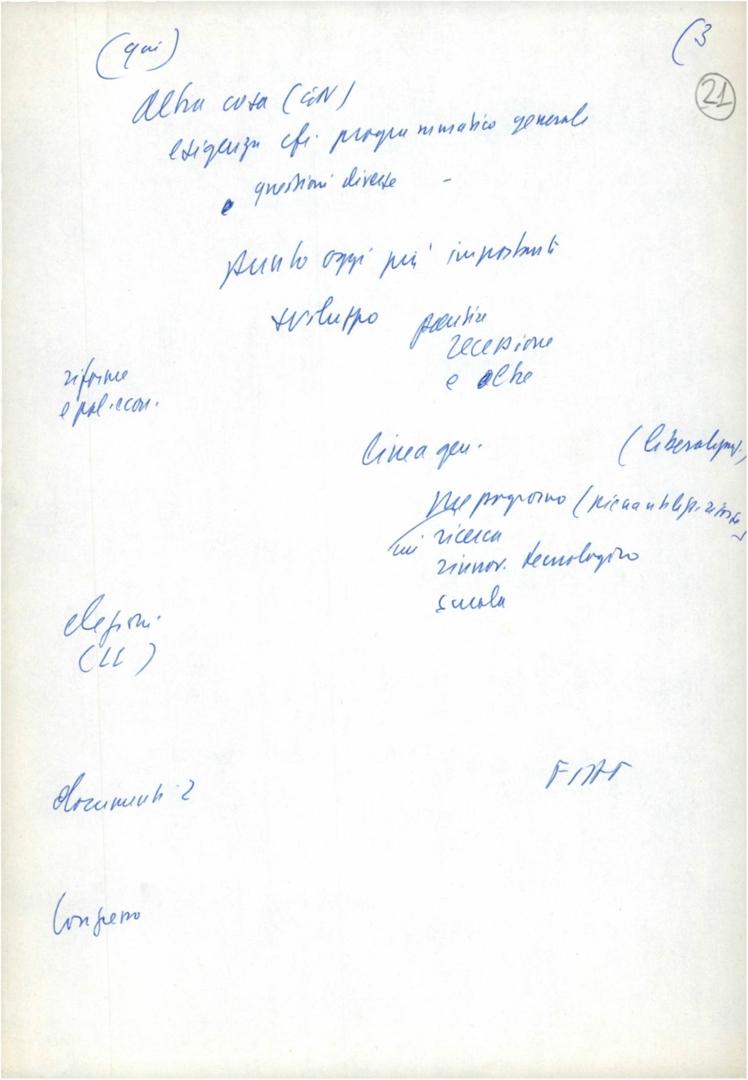 (qui)
(3
21
Altra cosa (CIN)
esigenza cfr. programmatico generale
e questioni diverse -
punto oggi più importante
sviluppo
recessione
e altre
riforme
e pol. econ.
linea gen.
(
Mezzogiorno (
ricerca
rinnov. tecnologico
scuola
elezioni.
(LL)
documenti 2
FIAT
Congresso